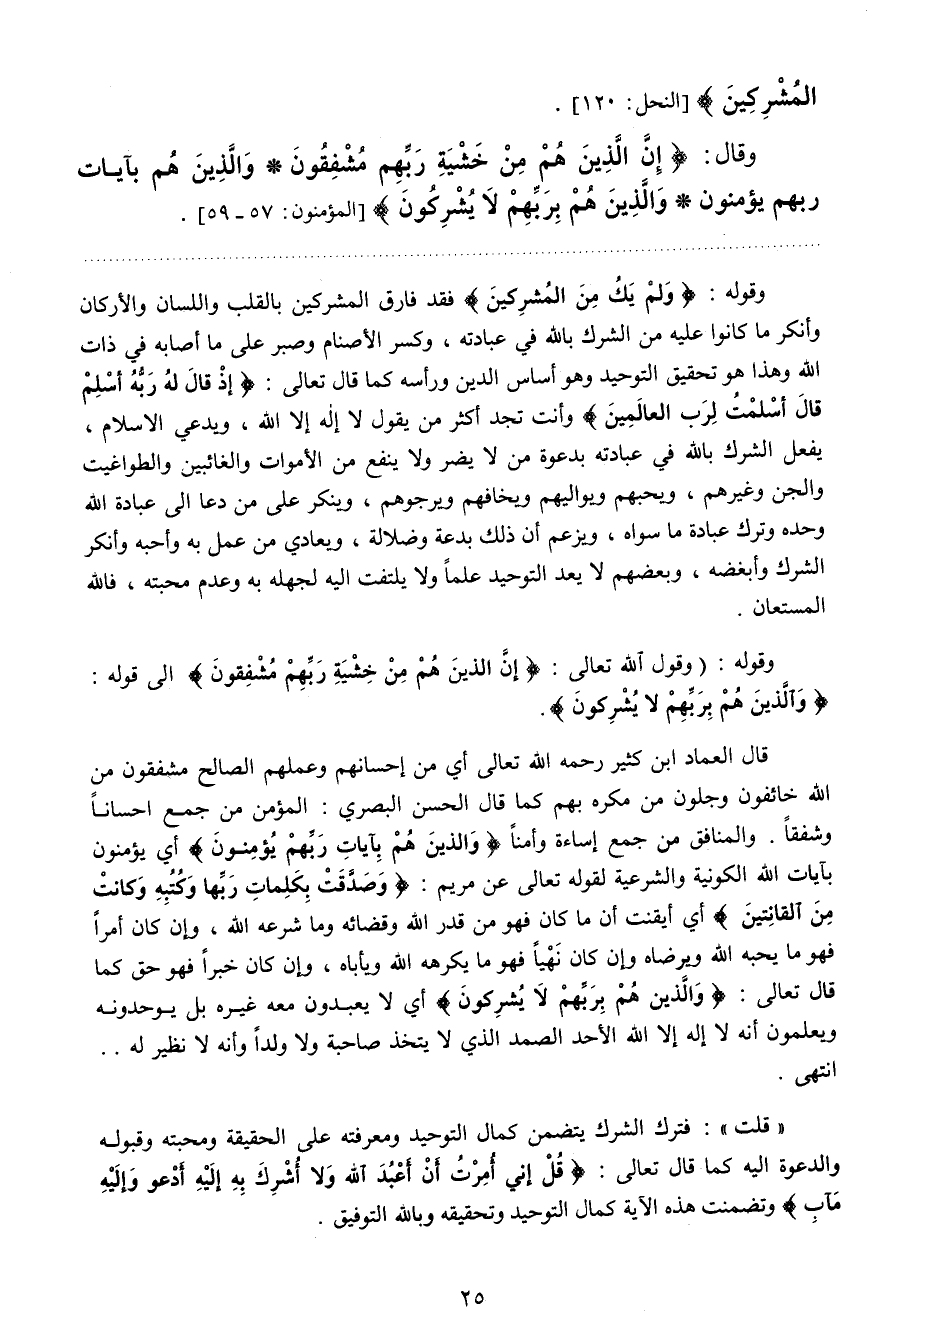 المُشْرِكِينَ ﴾ [النحل: ١٢٠] .
وقال: ﴿ إِنَّ الَّذِينَ هُمْ مِنْ خَشْيَةِ رَبِّهِم مُشْفِقُونَ * وَالَّذِينَ هُم بآيـات
ربهم يؤمنون * وَالَّذِينَ هُمْ بِرَبِّهِمْ لاَ يُشْرِكُونَ ﴾ [المؤمنون: ٥٧ ـ ٥٩] .
وقوله : ﴿ وَلَمْ يَكُ مِنَ المُشرِكينَ ﴾ فقد فارق المشركين بالقلب واللسان والأركان
وأنكر ما كانوا عليه من الشرك بالله في عبادته ، وكسر الأصنام وصبر على ما أصابه في ذات
الله وهذا هو تحقيق التوحيد وهو أساس الدين ورأسه كما قال تعالى : ﴿ إذْ قالَ لهُ رَبُّهُ أسْلِمْ
قالَ أسْلمْتُ لِرَب العالَمِينَ ﴾ وأنت تجد أكثر من يقول لا إله إلا الله ، ويدعي الاسلام ،
يفعل الشرك بالله في عبادته بدعوة من لا يضر ولا ينفع من الأموات والغائبين والطواغيت
والجن وغيرهم ، ويحبهم ويواليهم ويخافهم ويرجوهم ، وينكر على من دعا الى عبادة الله
وحده وترك عبادة ما سواه ، ويزعم أن ذلك بدعة وضلالة ، ويعادي من عمل به وأحبه وأنكر
الشرك وأبغضه ، وبعضهم لا يعد التوحيد علماً ولا يلتفت اليه لجهله به وعدم محبته ، فالله
المستعان .
وقوله : ( وقول الله تعالى : ﴿ إنَّ الذينَ هُمْ مِنْ خِشْيَةِ رَبِّهِمْ مُشْفِقونَ ﴾ الى قوله :
﴿ وَالَّذينَ هُمْ بِرَبِّهِمْ لا يُشْرِكونَ ﴾.
قال العماد ابن كثير رحمه الله تعالى أي من إحسانهم وعملهم الصالح مشفقون من
الله خائفون وجلون من مكره بهم كما قال الحسن البصري : المؤمن من جمـع احسانـاً
وشفقاً . والمنافق من جمع إساءة وأمناً ﴿ وَالذينَ هُمْ بِآياتِ رَبِّهِمْ يُؤْمِنـونَ ﴾ أي يؤمنون
بآيات الله الكونية والشرعية لقوله تعالى عن مريم : ﴿ وَصَدَّقَتْ بِكَلِماتِ رَبِّها وَكُتُبِهِ وَكانتْ
مِنَ القانِتينَ ﴾ أي أيقنت أن ما كان فهو من قدر الله وقضائه وما شرعه الله ، وإن كان أمراً
فهو ما يحبه الله ويرضاه وإن كان نَهْياً فهو ما يكرهه الله ويأباه ، وإن كان خبراً فهو حق كما
قال تعالى : ﴿ وَالَّذين هُمْ بِرَبِّهِمْ لاَ يُشرِكونَ ﴾ أي لا يعبـدون معه غيـره بل يـوحدونـه
ويعلمون أنه لا إله إلا الله الأحد الصمد الذي لا يتخذ صاحبة ولا ولداً وأنه لا نظير له . .
انتهى .
« قلت » : فترك الشرك يتضمن كمال التوحيد ومعرفته على الحقيقة ومحبته وقبولـه
والدعوة اليه كما قال تعالى : ﴿ قُلْ إني أُمِرْتُ أنْ أعْبُدَ الله وَلا أُشْرِكَ بِهِ إلَيْهِ أدْعو وَإلَيْهِ
مَآبِ ﴾ وتضمنت هذه الآية كمال التوحيد وتحقيقه وبالله التوفيق .
٢٥